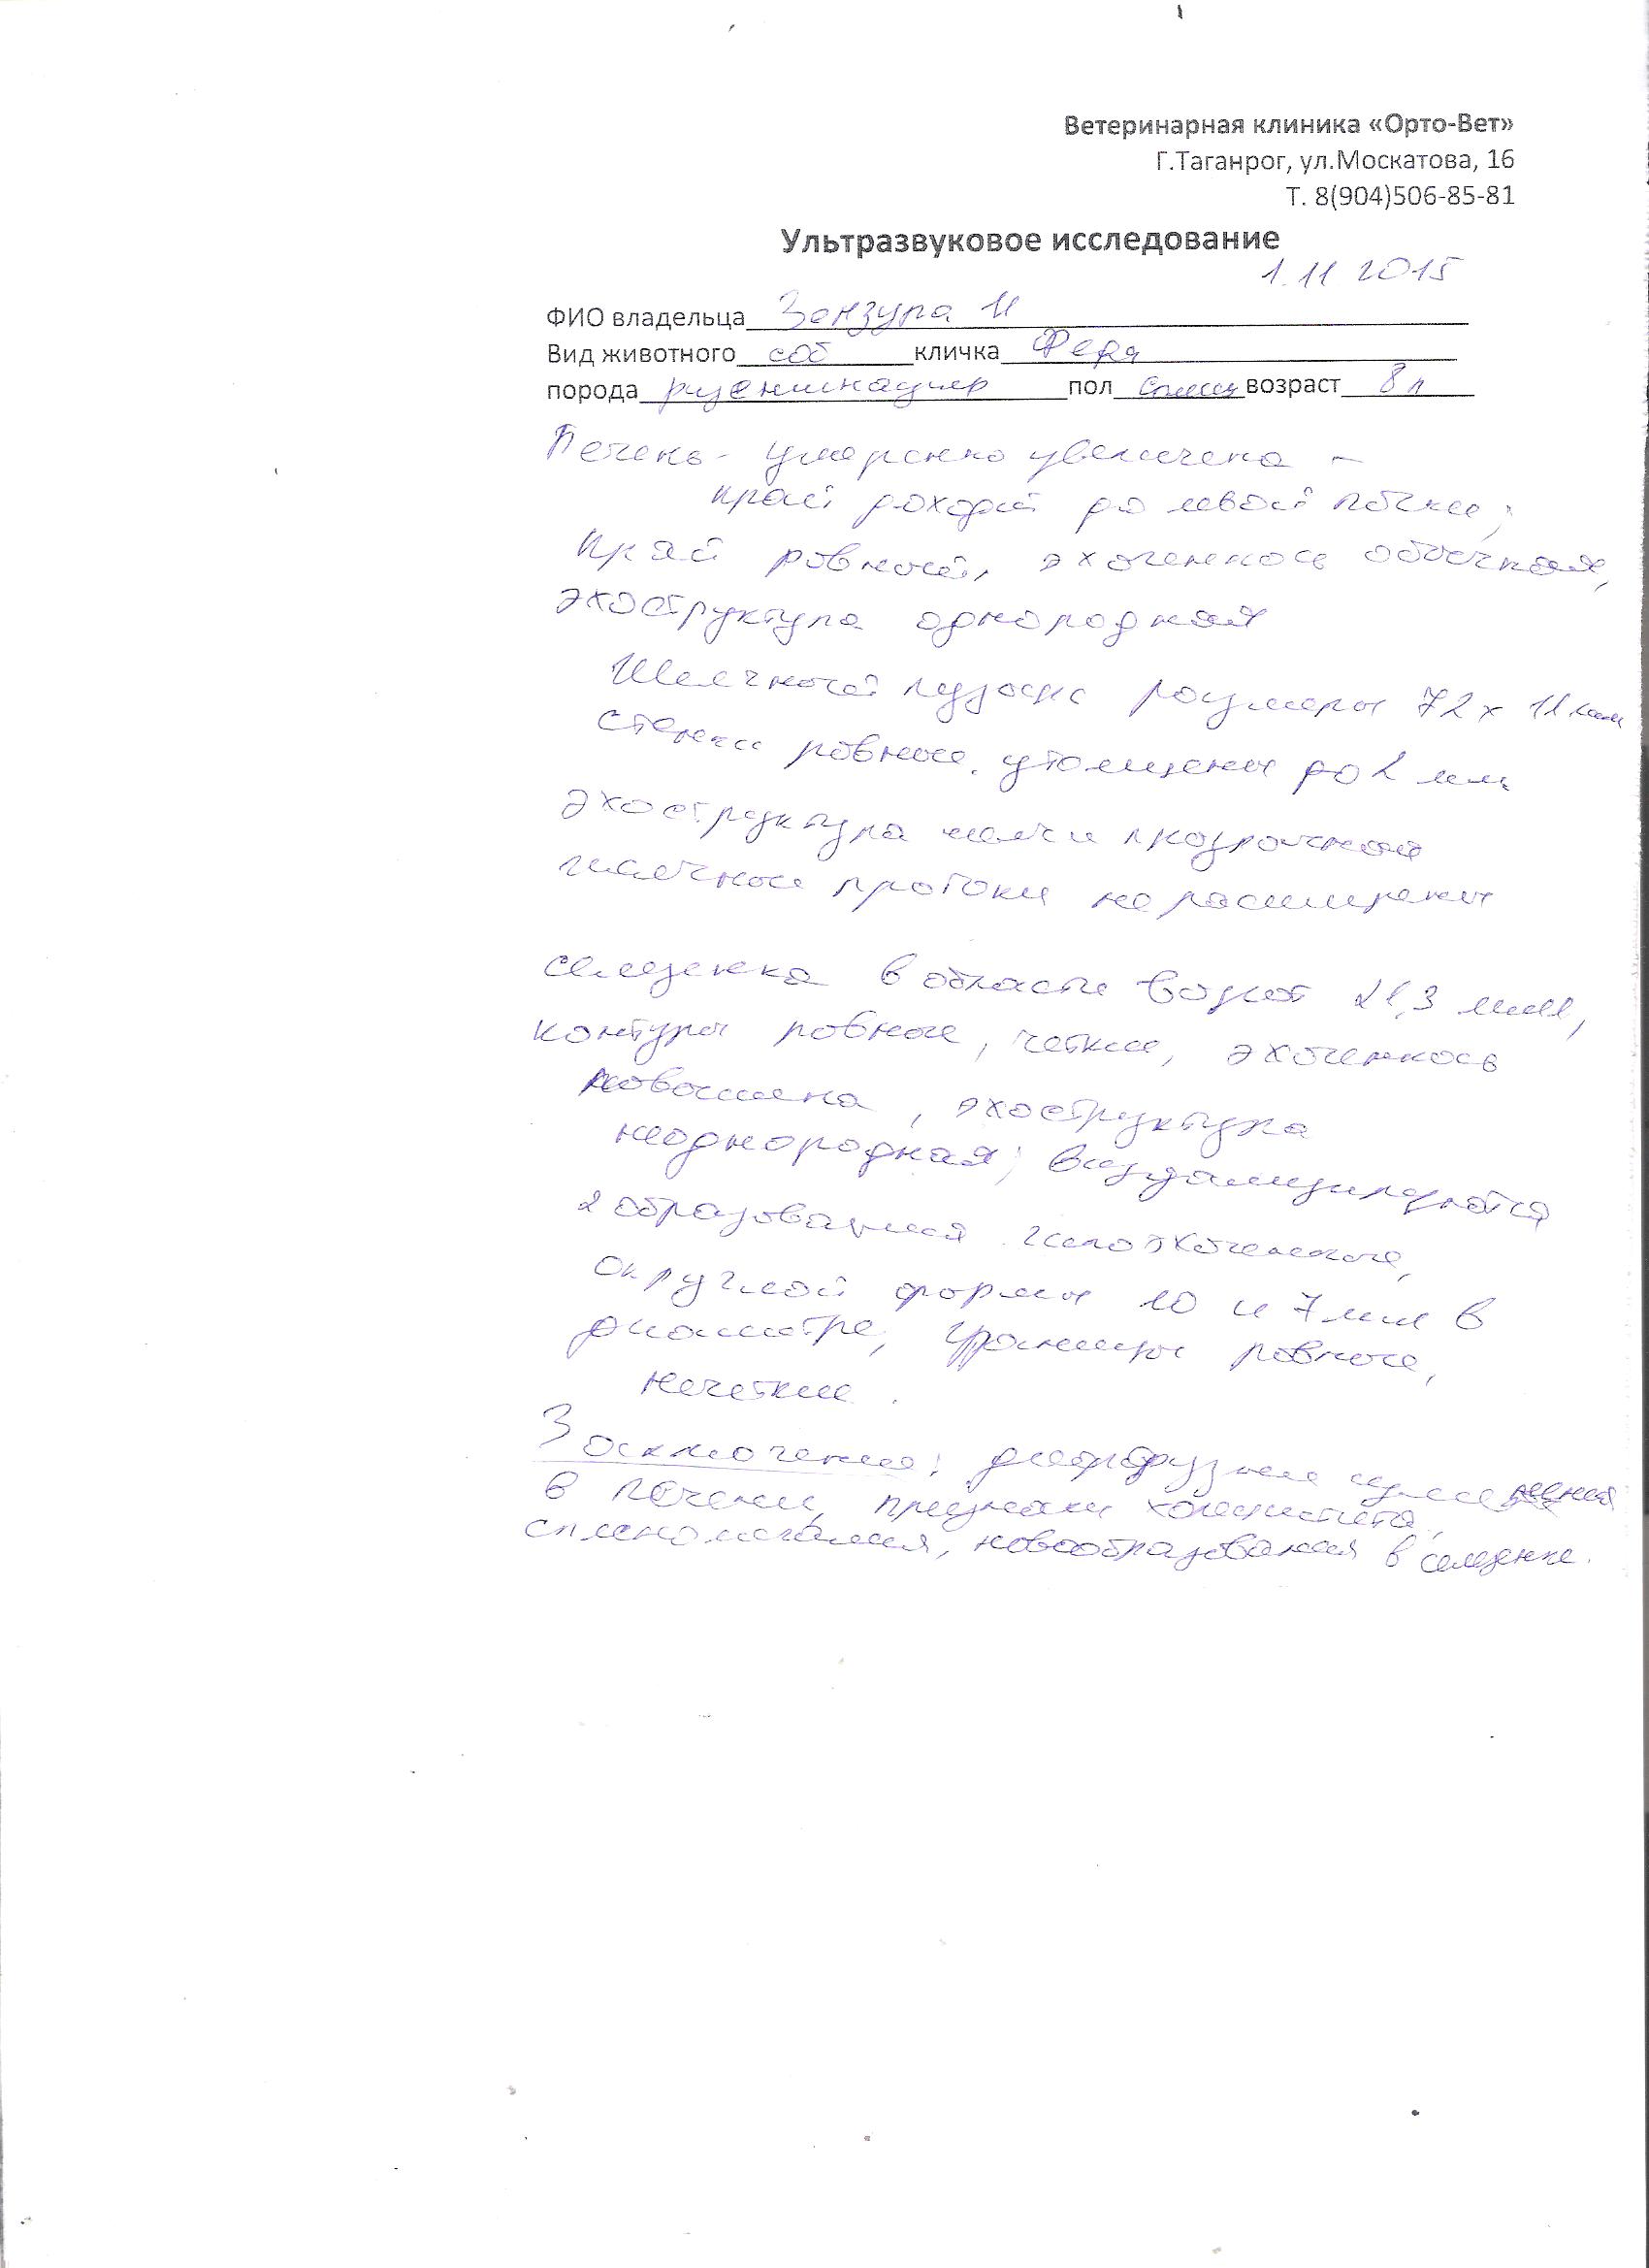 Ветеринарная клиника «Орто-Вет»
Г.Таганрог, ул.Москатова, 16
Т. 8(904)506-85-81
Ультразвуковое исследование
1.11 2015
ФИО владельца Зензура И
Вид животного соб кличка Федя
порода ризеншнауцер пол самец возраст 8 л
Печень - умеренно увеличена -
край доходит до левой почки;
край ровный, эхогенность обычная,
эхоструктура однородная
Желчный пузырь размеры 72 х 11 мм
стенки ровные, утолщены до 2 мм
эхоструктура желчи прозрачная
желчные протоки не расширены
Селезенка в области ворот 21,3 мм,
контуры ровные, четкие, эхогенность
повышена, эхоструктура
неоднородная; визуализируются
2 образования гипоэхогенные,
округлой формы 10 и 7 мм в
диаметре, границы ровные,
нечеткие.
Заключение: диффузные изменения
в печени, признаки холецистита,
спленомегалия, новообразования в селезенке.